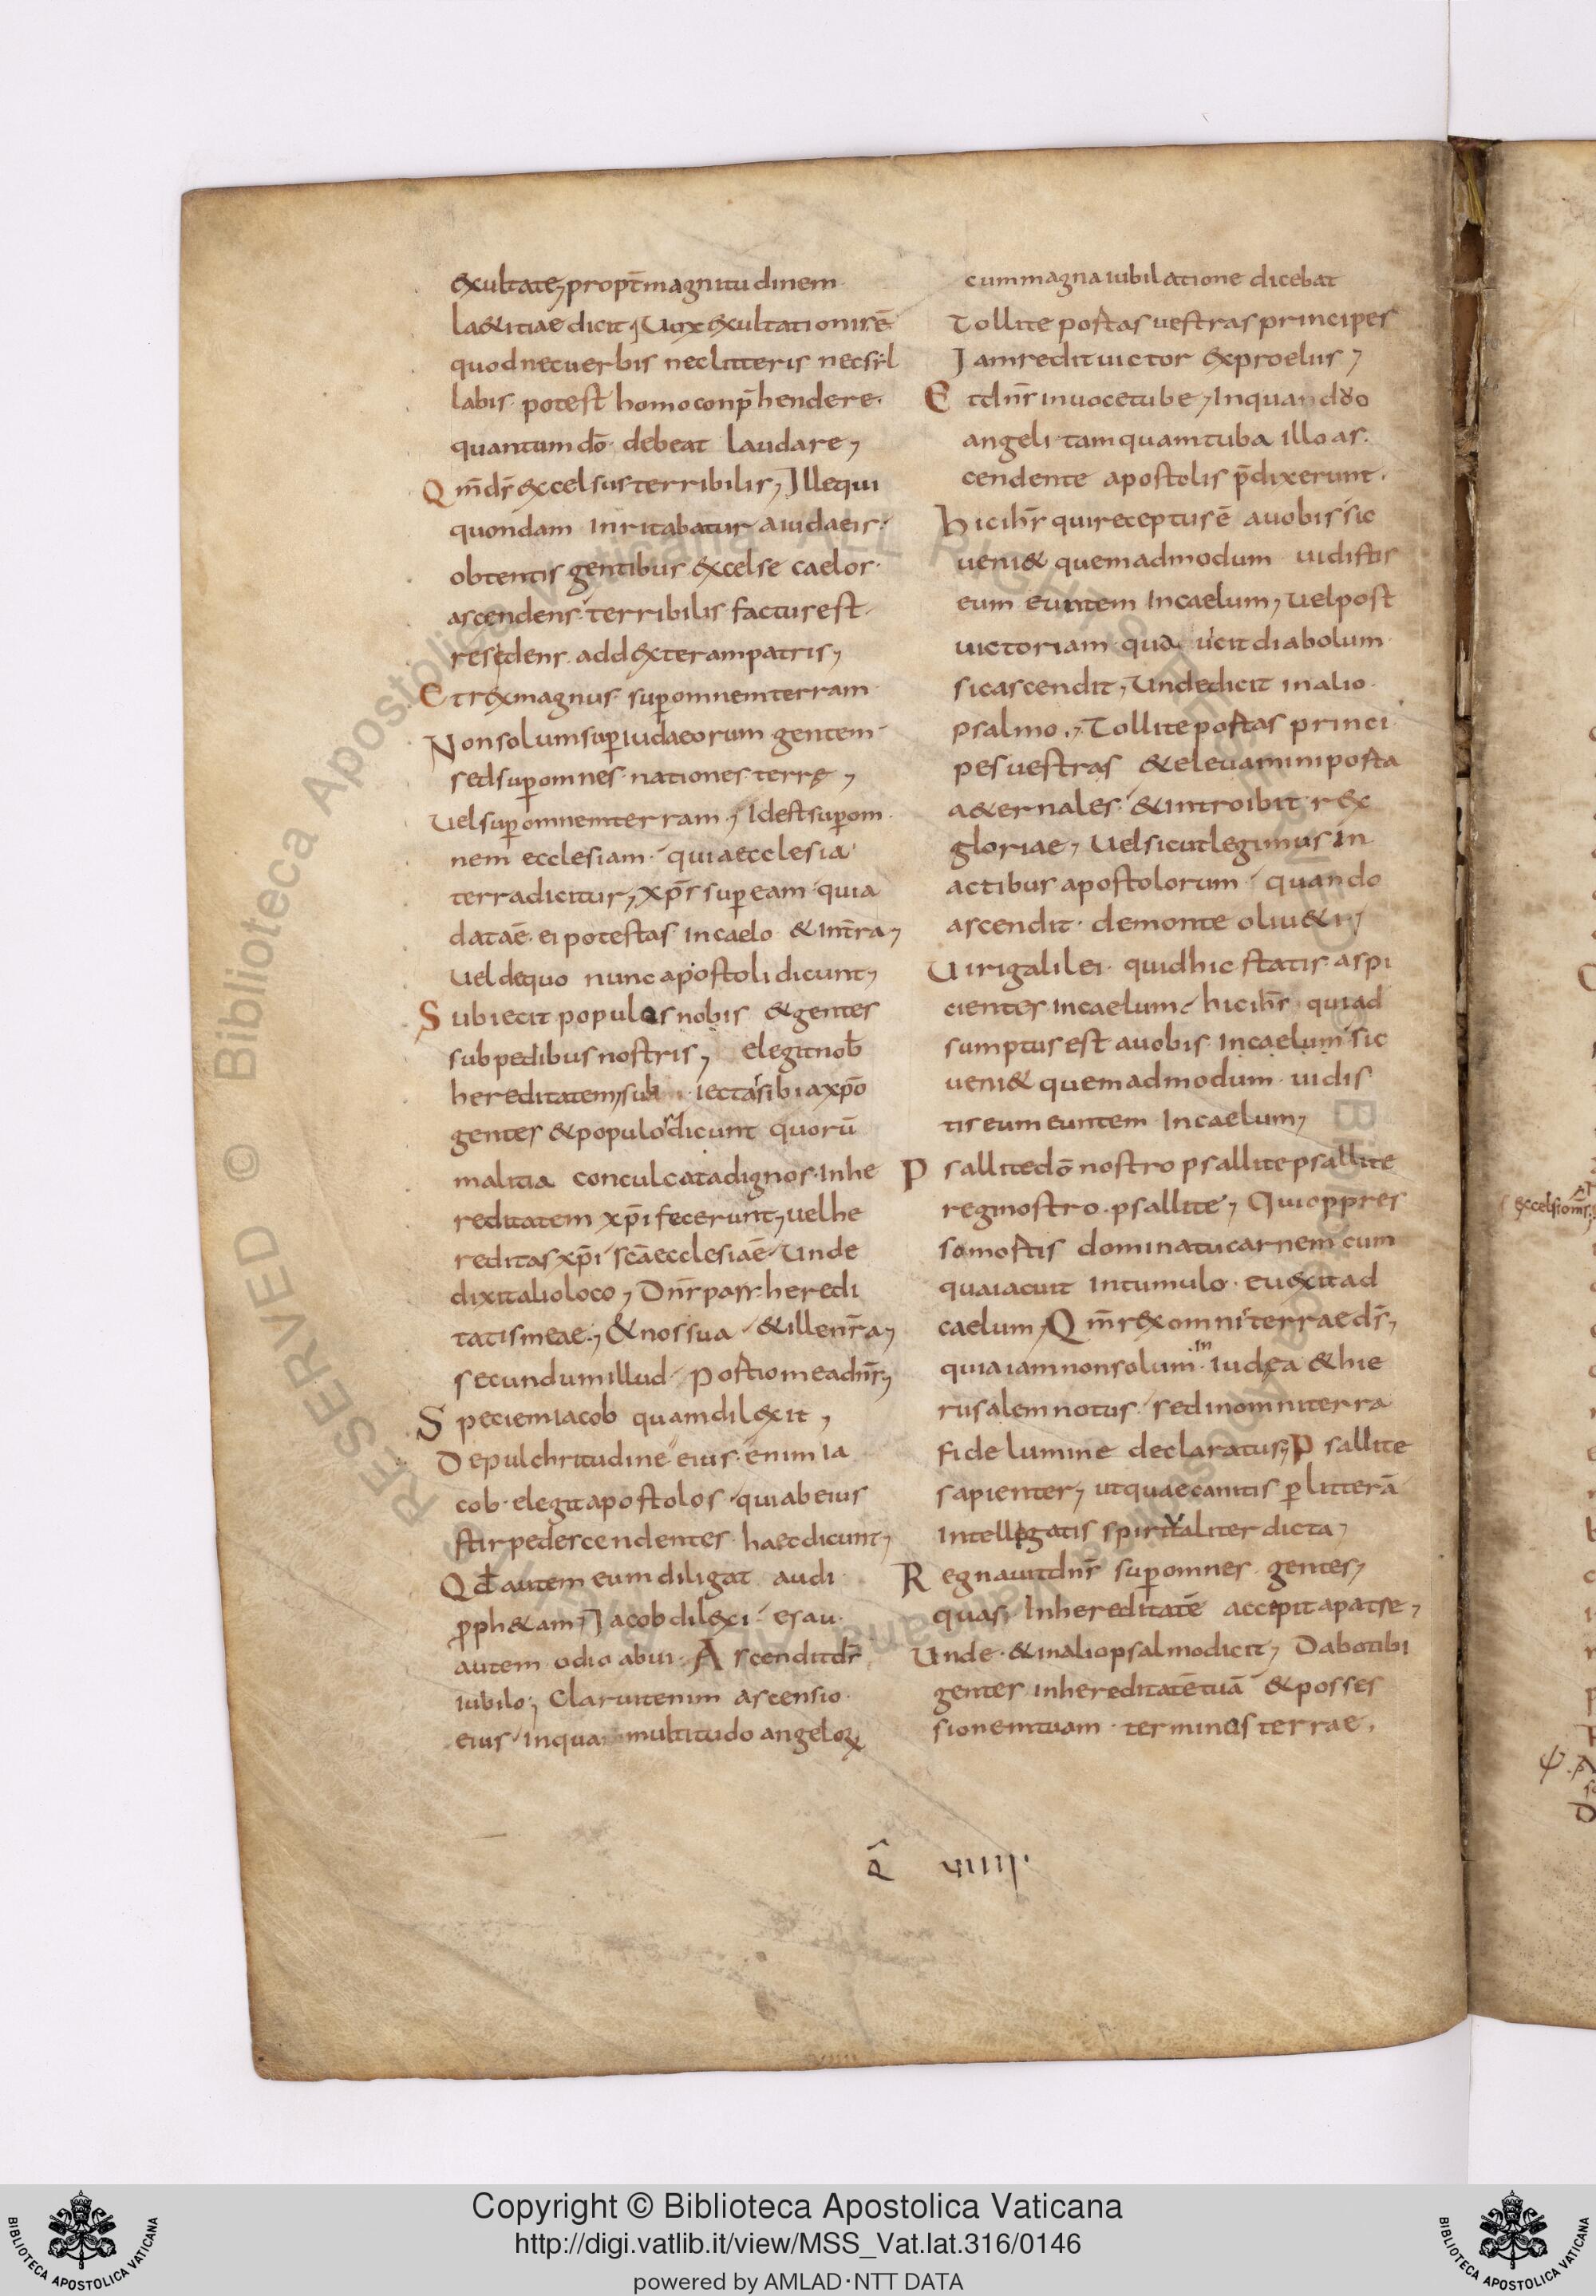 exultate, propt̄ magnitudinem
laetitiae dicit, Uox exultationis ē
quod nec uerbis nec litteris nec sil
labis potest homo conp̄hendere.
quantum dō debeat laudare,
Qm̄ ds̄ excelsus terribilis, Ille qui
quondam inritabatur a iudaeis.
obtentis gentibus excelse caelos
ascendens terribilis factus est
residens ad dexteram patris,
Et rex magnus sup̄ omnem terram
Non solum sup̄ iudaeorum gentem
sed sup̄ omnes nationes terrę,
Uel sup̄ omnem terram, Id est sup̄ om
nem ecclesiam quia ecclesia
terra dicitur, xp̄s sup̄ eam quia
data ē ei potestas in caelo & in t̄ra,
Uel de quo nunc apostoli dicunt,
Subiecit populos nobis & gentes
sub pedibus nostris, elegit nob̄
hereditatem, sub iectas sibi a xp̄o
gentes & populos dicunt quorū
malitia conculcata dignos inhe
reditatem xp̄i fecerunt, uel he
reditas xp̄i sc̄a ecclesia ē Unde
dixit alio loco, Dn̄s pars heredi
tatis meae, & nos sua & ille nr̄a,
secundum illud Portio mea dn̄s,
Speciem iacob quam dilexit,
De pulchritudine eius enim ia
cob elegit apostolos quia b eius
stirpe descendentes haec dicunt,
Qd̄ autem eum diligat audi
p̄ph&am, Iacob dilexi esau
autem odio abui. Ascendit ds̄
iubilo, Claruit enim ascensio
eius in qua multitudo angeloꝝ
cum magna iubilatione dicebat
Tollite portas uestras principes
Iam redit uictor ex proeliis,
Et dn̄s in uoce tubę, In quando
angeli tamquam tuba illo as
cendente apostolis p̄dixerunt.
Hic ih̄s qui receptus ē a uobis sic
ueni& quemadmodum uidistis
eum euntem in caelum, Uel post
uictoriam qua uicit diabolum
sic ascendit, Unde dicit in alio
psalmo, Tollite portas princi
pes uestras & eleuamini porta
a&ernales & introibit rex
gloriae, Uel sicut legimus in
actibus apostolorum quando
ascendit de monte oliu&i,
Uiri galilei quid hic statis aspi
cientes in caelum hic ih̄s qui ad
sumptus est a uobis in caelum sic
ueni& quemadmodum uidis
tis eum euntem in caelum,
Psallite dō nostro psallite psallite
regi nostro psallite, Qui oppres
so mortis dominatu carnem cum
qua iacuit in tumulo euexit ad
caelum, Qm̄ rex omnis terrae ds̄,
quia iam non solum in iudea & hie
rusalem notus sed in omni terra
fide lumine declaratus, Psallite
sapienter, ut quae canitis p̄ litterā
intellegatis spiritaliter dicta,
Regnauit dn̄s sup̄ omnes gentes,
quas in hereditatē accepit a patre,
Unde & in alio psalmo dicit, Dabo tibi
gentes in hereditatē tuā & posses
sionem tuam terminos terrae.
q̄ uiiii.
© Biblioteca Apostolica Vaticana ALL RIGHTS RESERVED
Copyright © Biblioteca Apostolica Vaticana
http://digi.vatlib.it/view/MSS_Vat.lat.316/0146
powered by AMLAD·NTT DATA
BIBLIOTECA APOSTOLICA VATICANA
BIBLIOTECA APOSTOLICA VATICANA